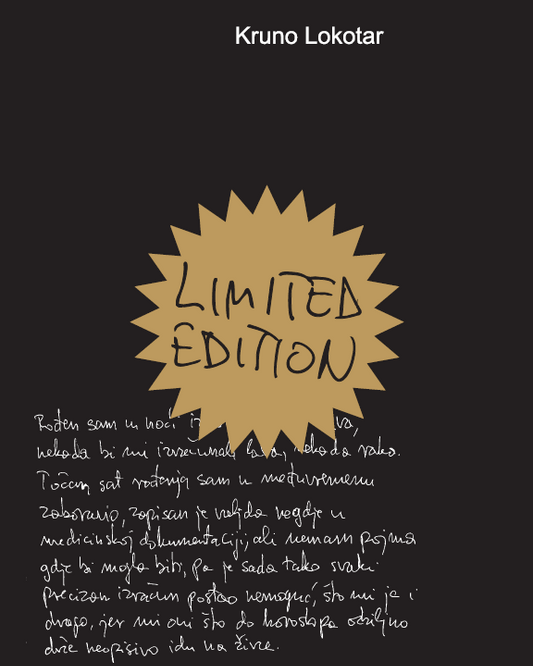 Kruno Lokotar
LIMITED
EDITION
Rođen sam u noći iz
nekada bi mi izračunali lava, nekada raka.
Točan sat rođenja sam u međuvremenu
zaboravio, zapisan je valjda negdje u
medicinskoj dokumentaciji, ali nemam pojma
gdje bi mogla biti, pa je sada tako svaki
precizan izračun postao nemoguć, što mi je i
drago, jer mi oni što do horoskopa ozbiljno
drže neopisivo idu na živce.